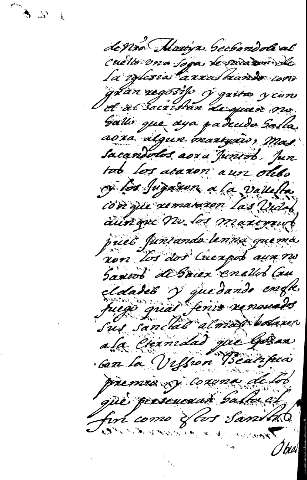 de Nro Martyr hechandole al
cuello una soga le sacaron de
la yglesia arrastrando con
gran regosijo y grita y con
el al sacristan de quien no
halle que aya padecido hasta
aora algun martyrio, mas
sacandolos aora juntos. Jun
tos los ataron a un olibo
y los jugaron a la vallesta
con que remataron las vidas
aunque no los
pues juntando lenna quema
ron los dos cuerpos aun no
hartos de haser en ellos cru
eldades y quedando en el
fuego qual fenis renovados
sus sanctas almas bolaron
a la eternidad que gosan
con la Vission Beatifica
premio y corona de los
que perseveran hasta al
fin como estos Sanctos.